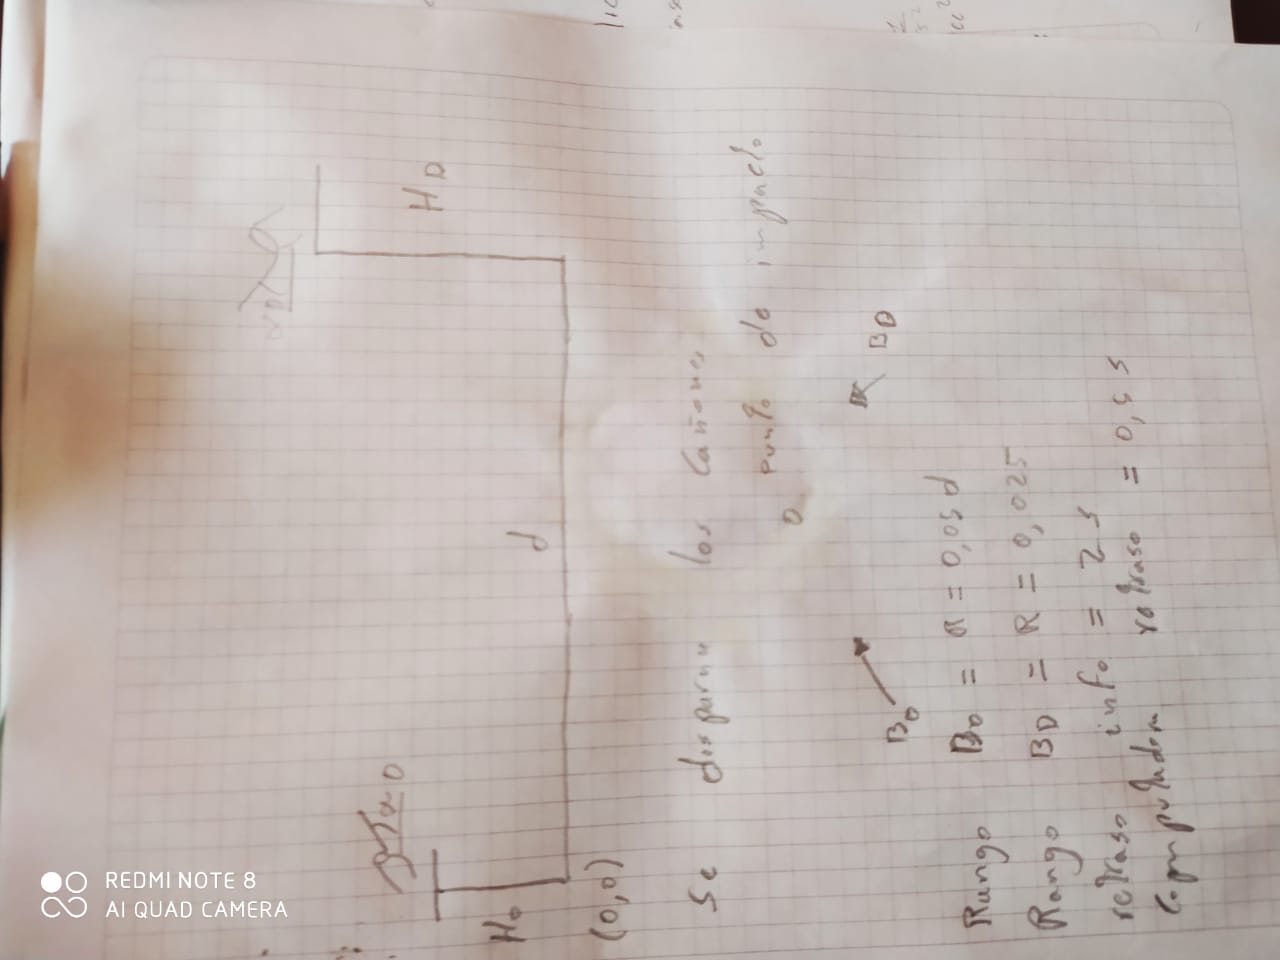 αD
αo
Ho
d
HD
(0,0)
Se disparan los cañones
o punto de impacto
Bo
BD
Rango Bo = R = 0,05d
Rango BD = R = 0,025
retraso info = 2s
Computadora retraso = 0,5 s
REDMI NOTE 8
AI QUAD CAMERA